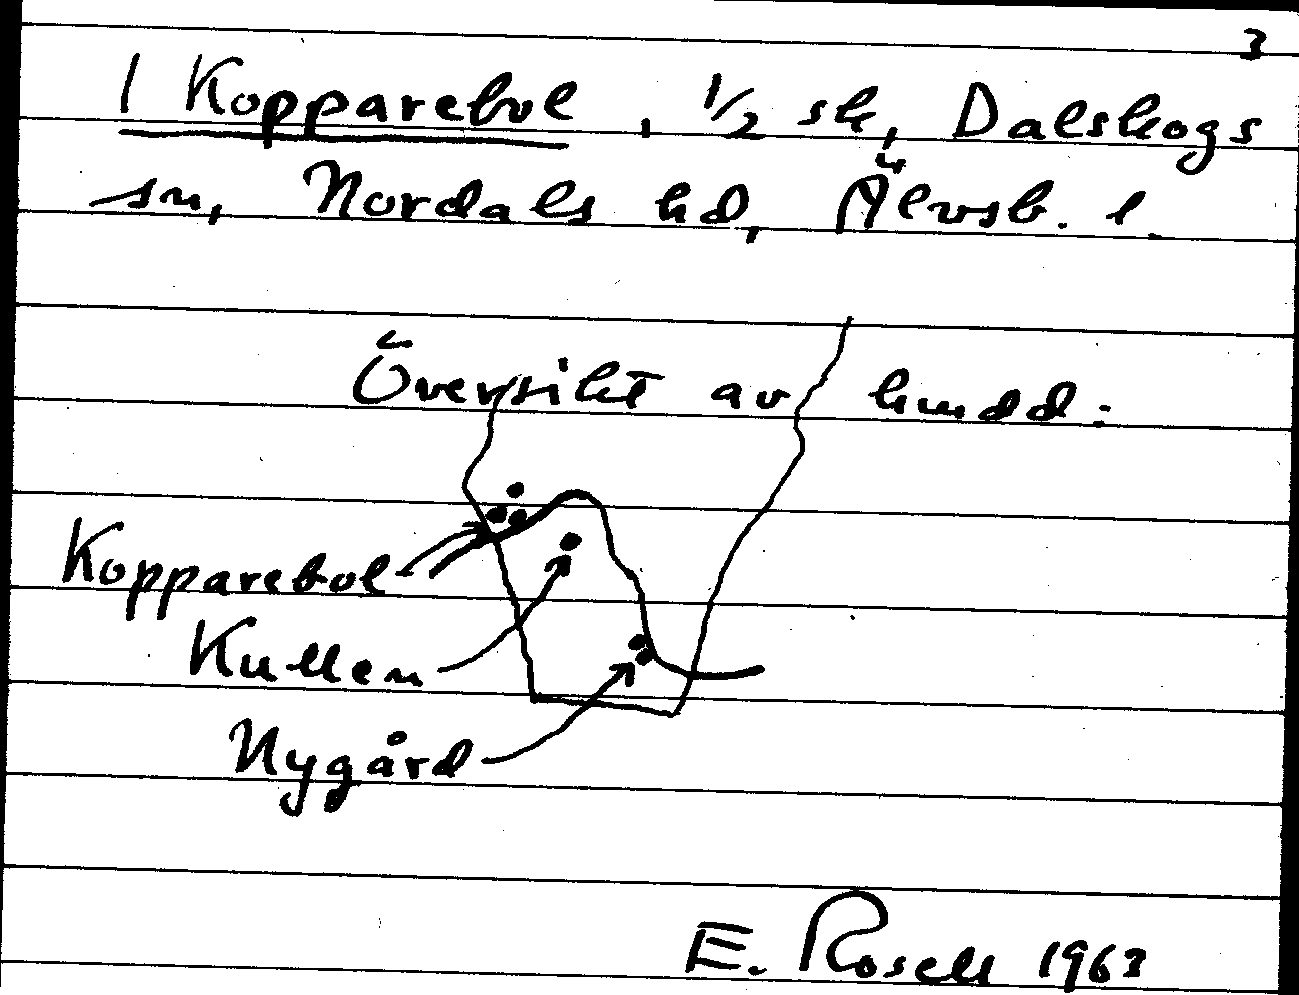 3
1 Kopparebol, 1/2 sk, Dalskogs
sn, Nordals hd, Älvsb. l.
Översikt av hmdd:
Kopparebol
Kullen
Nygård
E. Rosell 1963